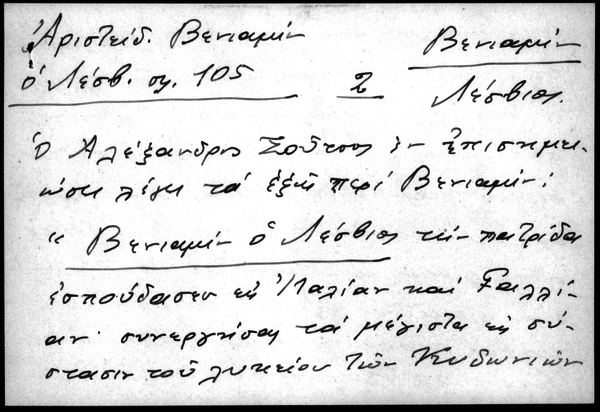 Ἀριστείδ. Βενιαμὶν
ὁ Λέσβ. σλ. 105
Βενιαμὶν
2
Λέσβιος.
Ὁ Ἀλέξανδρος Σοῦτσος ἐν ἐπισημει-
ώσει λέγει τὰ ἑξῆς περὶ Βενιαμίν:
" Βενιαμὶν ὁ Λέσβιος τὴν πατρίδα
ἐσπούδασεν εἰς Ἰταλίαν καὶ Γαλλί-
αν· συνεργήσας τὰ μέγιστα εἰς σύ-
στασιν τοῦ λυκείου τῶν Κυδωνιῶν